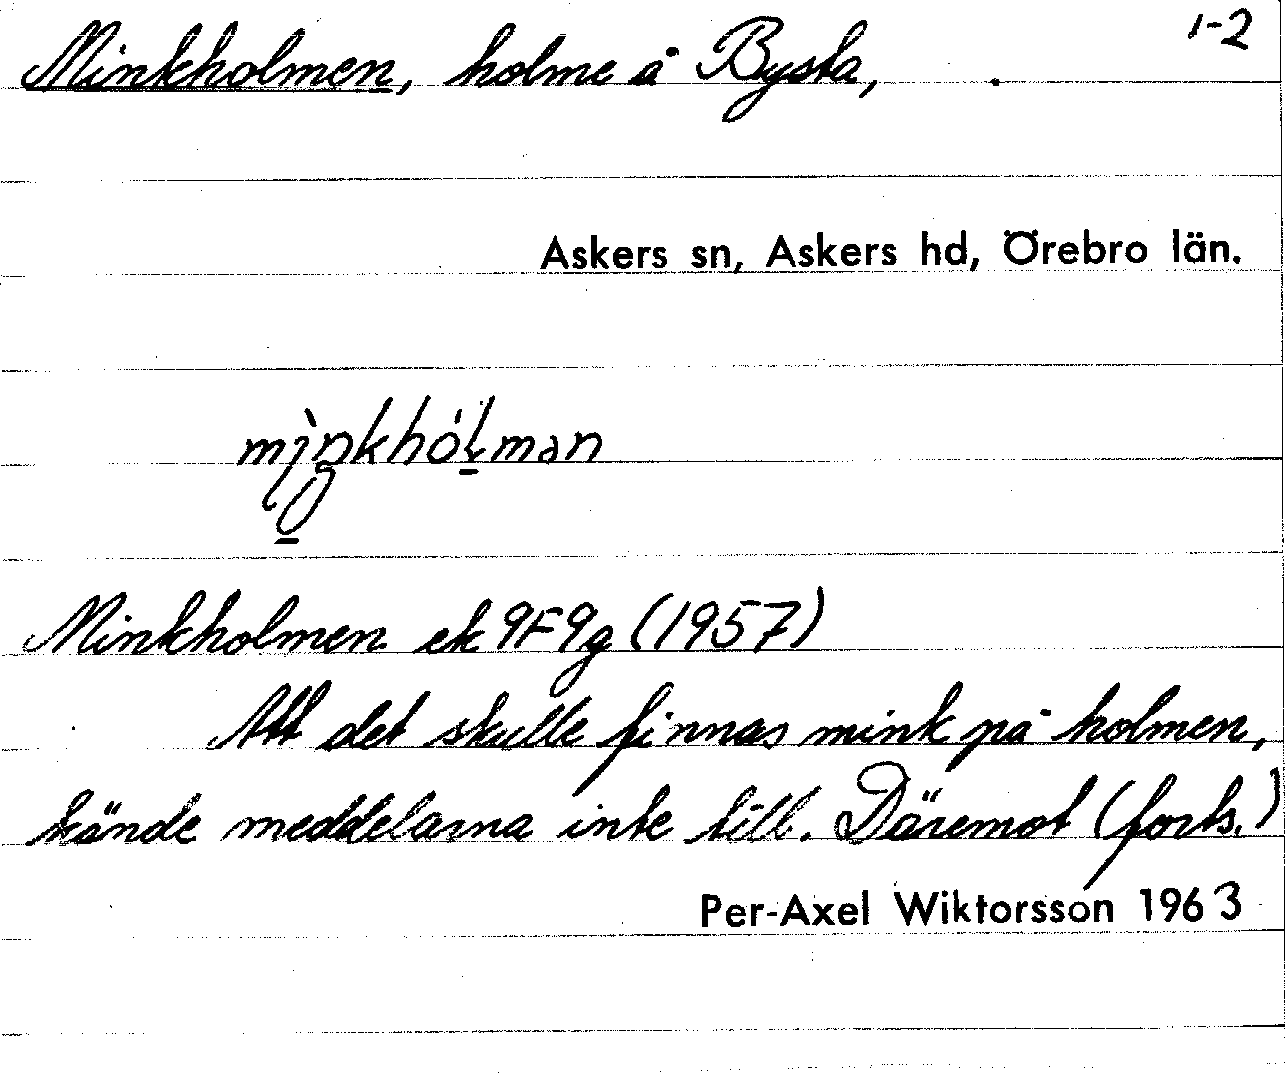 1-2
Minkholmen, holme å Bysta, .
Askers sn, Askers hd, Örebro län.
mìŋkhólmən
Minkholmen ek 9F9g (1957)
Att det skulle finnas mink på holmen,
kände meddelarna inte till. Däremot (forts.)
Per-Axel Wiktorsson 1963